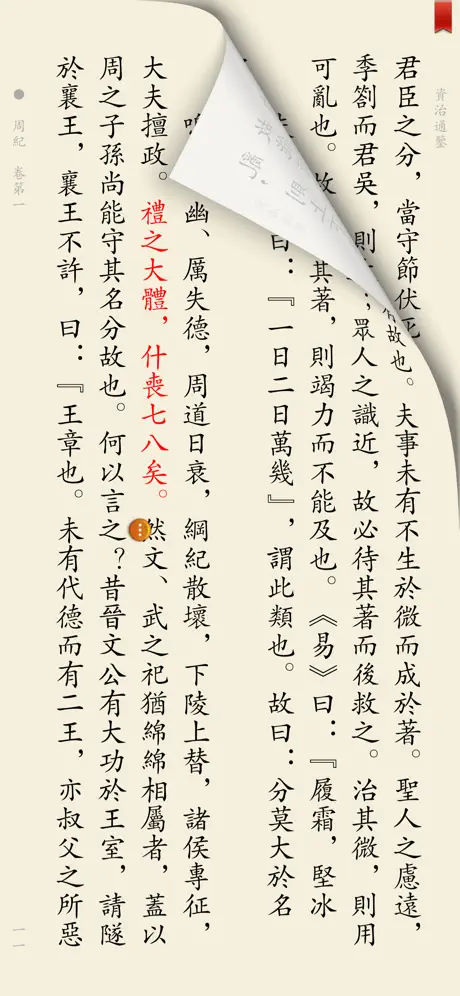 資治通鑒
君臣之分，當守節伏死故也。夫事未有不生於微而成於著。聖人之慮遠，
季劄而君吳，則；眾人之識近，故必待其著而後救之。治其微，則用
可亂也。故其著，則竭力而不能及也。《易》曰：『履霜，堅冰
曰：『一日二日萬幾』，謂此類也。故曰：分莫大於名
幽、厲失德，周道日衰，綱紀散壞，下陵上替，諸侯專征，
大夫擅政。禮之大體，什喪七八矣。然文、武之祀猶綿綿相屬者，蓋以
周之子孫尚能守其名分故也。何以言之？昔晉文公有大功於王室，請隧
於襄王，襄王不許，曰：『王章也。未有代德而有二王，亦叔父之所惡
周紀 卷第一
一一